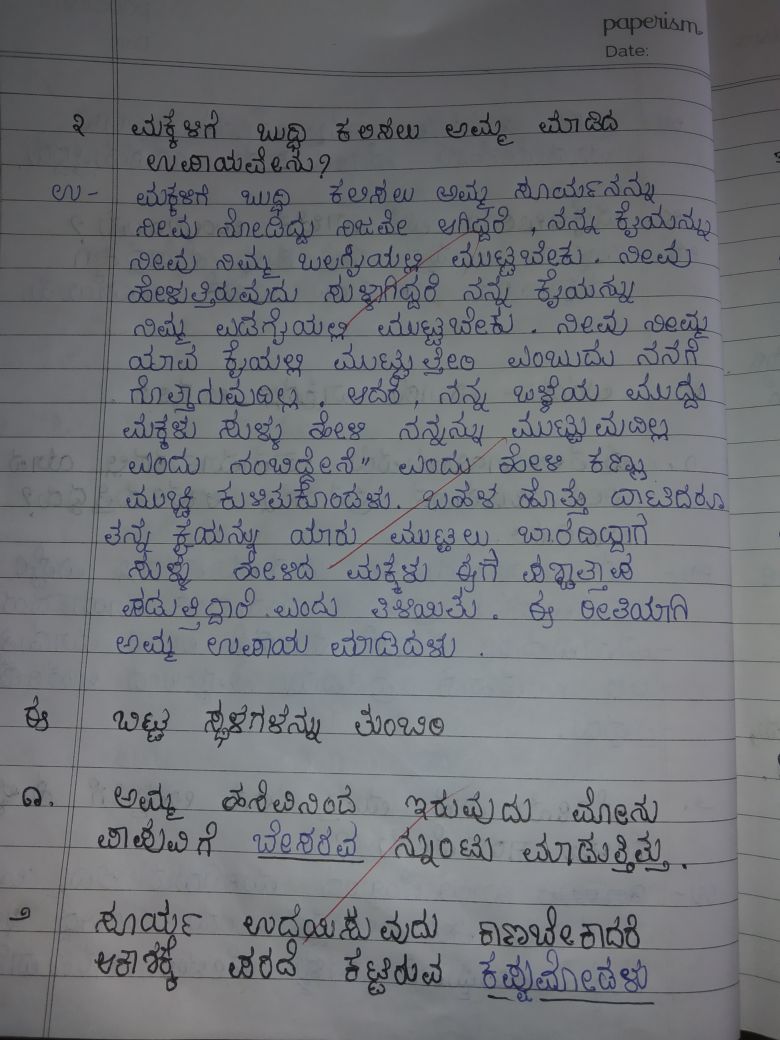 paperism
Date:
೩ ಮಕ್ಕಳಿಗೆ ಬುದ್ಧಿ ಕಲಿಸಲು ಅಮ್ಮ ಮಾಡಿದ
ಉಪಾಯವೇನು?
ಉ- ಮಕ್ಕಳಿಗೆ ಬುದ್ಧಿ ಕಲಿಸಲು ಅಮ್ಮ ಸೂರ್ಯನನ್ನು
ನೀವು ನೋಡಿದ್ದು ನಿಜವೇ ಆಗಿದ್ದರೆ, ನನ್ನ ಕೈಯನ್ನು
ನೀವು ನಿಮ್ಮ ಬಲಗೈಯಲ್ಲಿ ಮುಟ್ಟಬೇಕು. ನೀವು
ಹೇಳುತ್ತಿರುವುದು ಸುಳ್ಳಾಗಿದ್ದರೆ ನನ್ನ ಕೈಯನ್ನು
ನಿಮ್ಮ ಎಡಗೈಯಲ್ಲಿ ಮುಟ್ಟಬೇಕು. ನೀವು ನೀಮ್ಮ
ಯಾವ ಕೈಯಲ್ಲಿ ಮುಟ್ಟುತ್ತೀರಿ ಎಂಬುದು ನನಗೆ
ಗೊತ್ತಾಗುವುದಿಲ್ಲ. ಆದರೆ, ನನ್ನ ಒಳ್ಳೆಯ ಮುದ್ದು
ಮಕ್ಕಳು ಸುಳ್ಳು ಹೇಳಿ ನನ್ನನ್ನು ಮುಟ್ಟುವುದಿಲ್ಲ
ಎಂದು ನಂಬಿದ್ದೇನೆ" ಎಂದು ಹೇಳಿ ಕಣ್ಣು
ಮುಚ್ಚಿ ಕುಳಿತುಕೊಂಡಳು. ಬಹಳ ಹೊತ್ತು ದಾಟಿದರೂ
ತನ್ನ ಕೈಯನ್ನು ಯಾರು ಮುಟ್ಟಲು ಬಾರದಿದ್ದಾಗ
ಸುಳ್ಳು ಹೇಳಿದ ಮಕ್ಕಳು ಈಗ ಪಶ್ಚಾತ್ತಾಪ
ಪಡುತ್ತಿದ್ದಾರೆ ಎಂದು ತಿಳಿಯಿತು. ಈ ರೀತಿಯಾಗಿ
ಅಮ್ಮ ಉಪಾಯ ಮಾಡಿದಳು.
ಈ ಬಿಟ್ಟ ಸ್ಥಳಗಳನ್ನು ತುಂಬಿರಿ
೧. ಅಮ್ಮ ಹಸಿವಿನಿಂದ ಇರುವುದು ಮೋನು
ಪಾಪುವಿಗೆ ಬೇಸರವ ನ್ನುಂಟು ಮಾಡುತ್ತಿತ್ತು.
೨ ಸೂರ್ಯ ಉದಯಿಸುವುದು ಕಾಣಬೇಕಾದರೆ
ಆಕಾಶಕ್ಕೆ ಪರದೆ ಕಟ್ಟಿರುವ ಕಪ್ಪುಮೋಡಳು